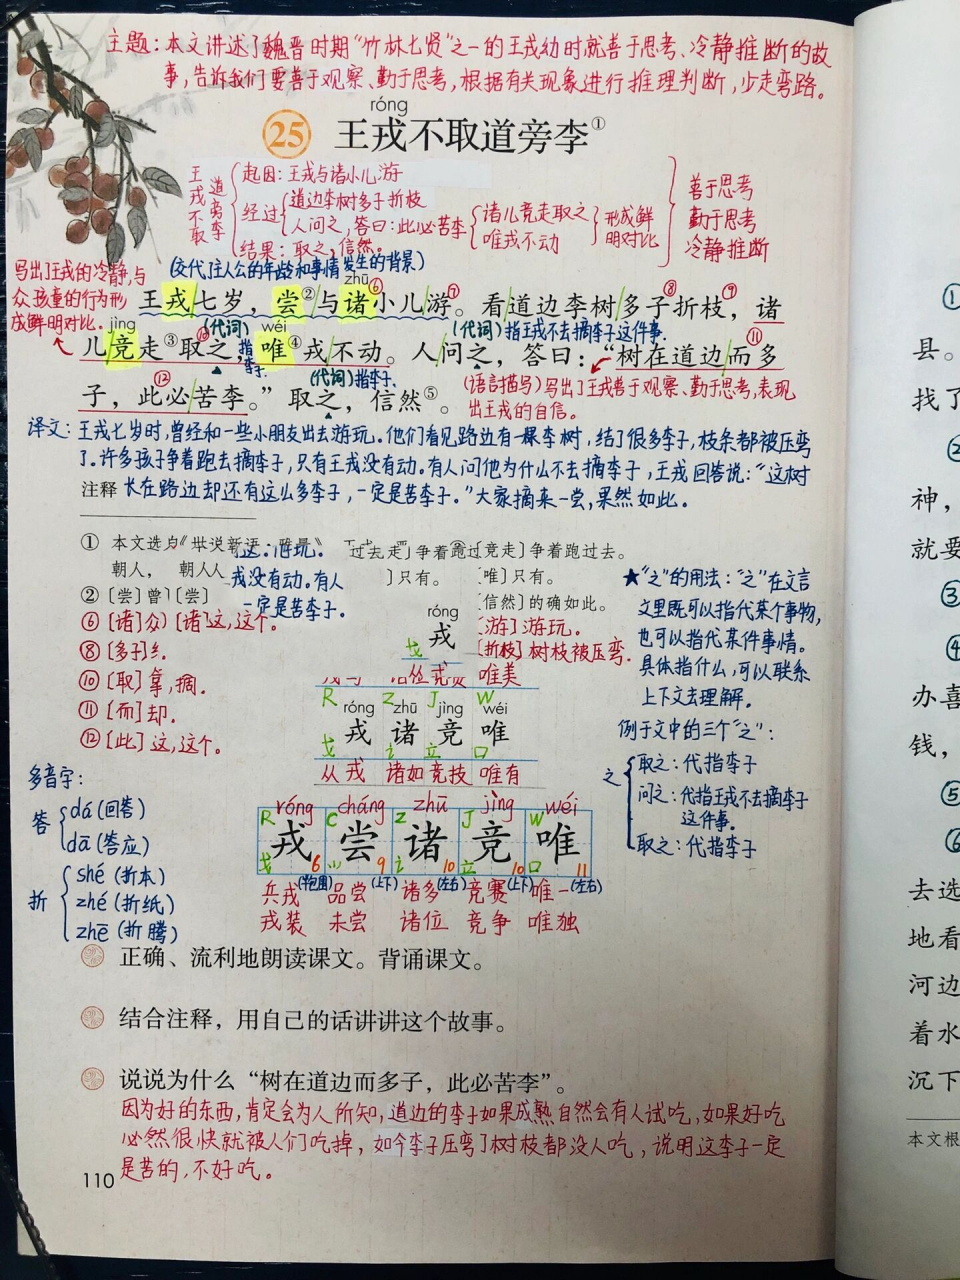 主题：本文讲述了魏晋时期“竹林七贤”之一的王戎幼时就善于思考、冷静推断的故
事，告诉我们要善于观察、勤于思考，根据有关现象进行推理判断，少走弯路。
róng
25 王戎不取道旁李①
王戎不取
道旁李
起因：王戎与诸小儿游
经过
道边李树多子折枝
人问之，答曰：此必苦李
诸儿竞走取之
唯戎不动
形成鲜
明对比
结果：取之，信然。
善于思考
勤于思考
冷静推断
写出了王戎的冷静，与
众孩童的行为形
成鲜明对比。
(交代了主人公的年龄和事情发生的背景)
zhū
王戎七岁，尝②与诸⑥小儿游⑦。看道边李树多子⑧折枝⑨，诸
jìng (代词) wéi (代词)指王戎不去摘李子这件事.
儿竞走③取⑩之，唯④戎不动。人问之，答曰：“树在道边而⑪多
指李子.
(代词)指李子.
子，此⑫必苦李。”取之，信然⑤。
(语言描写)写出了王戎善于观察、勤于思考，表现
出王戎的自信。
译文：王戎七岁时，曾经和一些小朋友出去游玩。他们看见路边有一棵李树，结了很多李子，枝条都被压弯
了。许多孩子争着跑去摘李子，只有王戎没有动。有人问他为什么不去摘李子，王戎回答说：“这树
注释 长在路边却还有这么多李子，一定是苦李子。”大家摘来一尝，果然如此。
① 本文选
争着跑过去。
朝人，
我没有动。有人
〕只有。
〔唯〕只有。
② 〔尝〕曾
一定是苦李子。
〔信然〕的确如此。
⑥ [诸]众
[诸]这，这个。
[游] 游玩.
⑧ [多子]
[折枝] 树枝被压弯.
⑩ [取] 拿，摘.
⑪ [而] 却.
⑫ [此] 这，这个.
róng
戎
戈
唯美
R Z J W
róng zhū jìng wéi
戎 诸 竞 唯
戈 讠 立 口
从戎 诸如 竞技 唯有
★“之”的用法：“之”在文言
文里既可以指代某个事物，
也可以指代某件事情。
具体指什么，可以联系
上下文去理解.
例于文中的三个“之”：
之
取之：代指李子
问之：代指王戎不去摘李子
这件事.
取之：代指李子
多音字：
答
dá (回答)
dā (答应)
折
shé (折本)
zhé (折纸)
zhē (折腾)
róng cháng zhū jìng wéi
R C Z J W
戎 尝 诸 竞 唯
戈 6 ⺌ 9 讠 10 立 10 口 11
(半包围) (上下) (左右) (上下) (左右)
兵戎 品尝 诸多 竞赛 唯一
戎装 未尝 诸位 竞争 唯独
正确、流利地朗读课文。背诵课文。
结合注释，用自己的话讲讲这个故事。
说说为什么“树在道边而多子，此必苦李”。
因为好的东西，肯定会为人所知，道边的李子如果成熟自然会有人试吃，如果好吃
必然很快就被人们吃掉，如今李子压弯了树枝都没人吃，说明这李子一定
是苦的，不好吃。
110
①
县。
找了
②
神，
就要
③
④
办喜
钱，
⑤
⑥
去选
地看
河边
着水
沉下
本文根